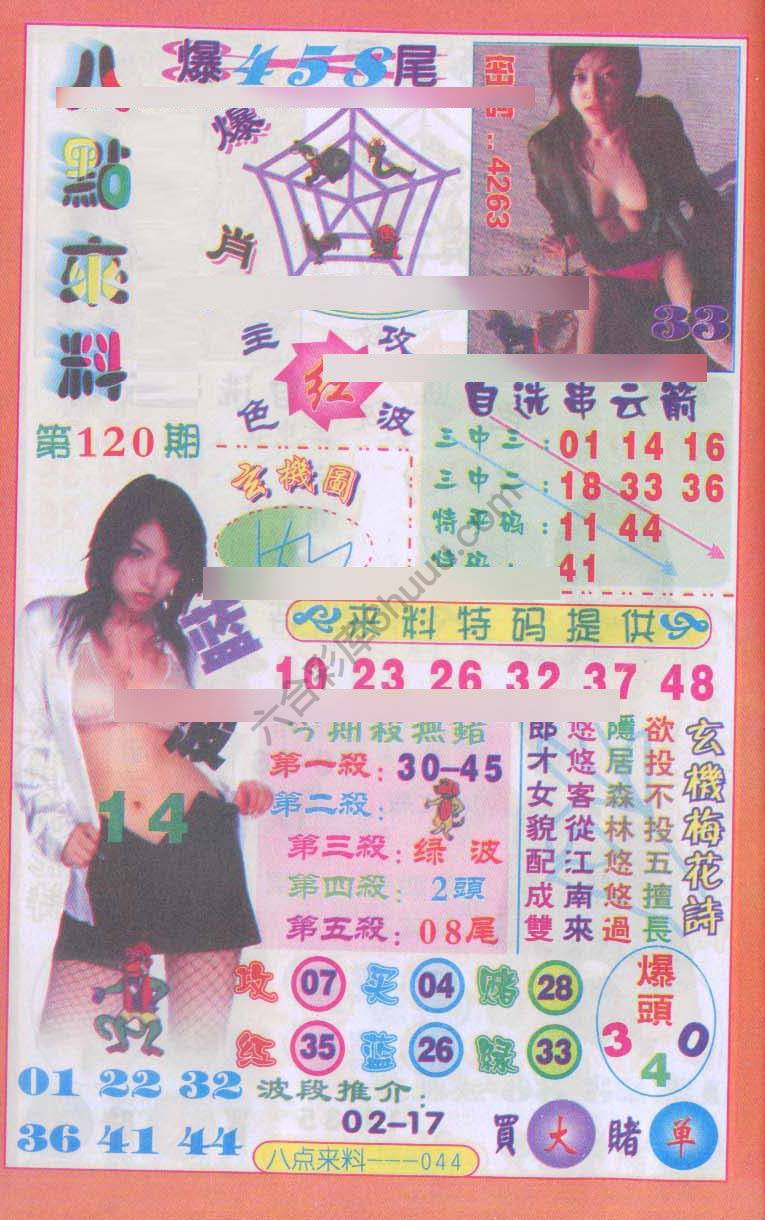 八點來料
爆458尾
爆肖
密碼：4263
33
主攻
红
色波
第120期
自选串云箭
三中三：01 14 16
三中二：18 33 36
特平码：11 44
特码：41
玄機圖
蓝波
14
来料特码提供
10 23 26 32 37 48
今期殺無賭
第一殺：30–45
第二殺：
第三殺：绿波
第四殺：2頭
第五殺：08尾
玄機梅花詩
欲投不投五擅長
隱居森林悠悠過
悠悠客從江南來
郎才女貌配成雙
攻 07 买 04 赌 28
红 35 蓝 26 绿 33
爆頭
3 4 0
01 22 32
36 41 44
波段推介：
02–17
買大賭单
八点来料---044
六合彩库6huuu.com